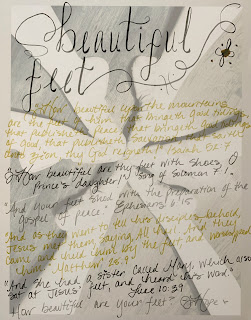 beautiful
feet
"How beautiful upon the mountains
are the feet of him that bringeth good tidings,
that publisheth peace; that bringeth good tidings
of good, that publisheth salvation; that saith
unto Zion, thy God reigneth!" Isaiah 52:7
"How beautiful are thy feet with shoes, O
prince's daughter!" Song of Solomon 7:1
"And your feet shod with the preparation of the
gospel of peace." Ephesians 6:15
"And as they went to tell his disciples, behold,
Jesus met them, saying, All hail. And they
came and held him by the feet, and worshipped
him." Matthew 28:9
"And she had a sister called Mary, which also
sat at Jesus' feet, and heard his word."
Luke 10:39
How beautiful are your feet?